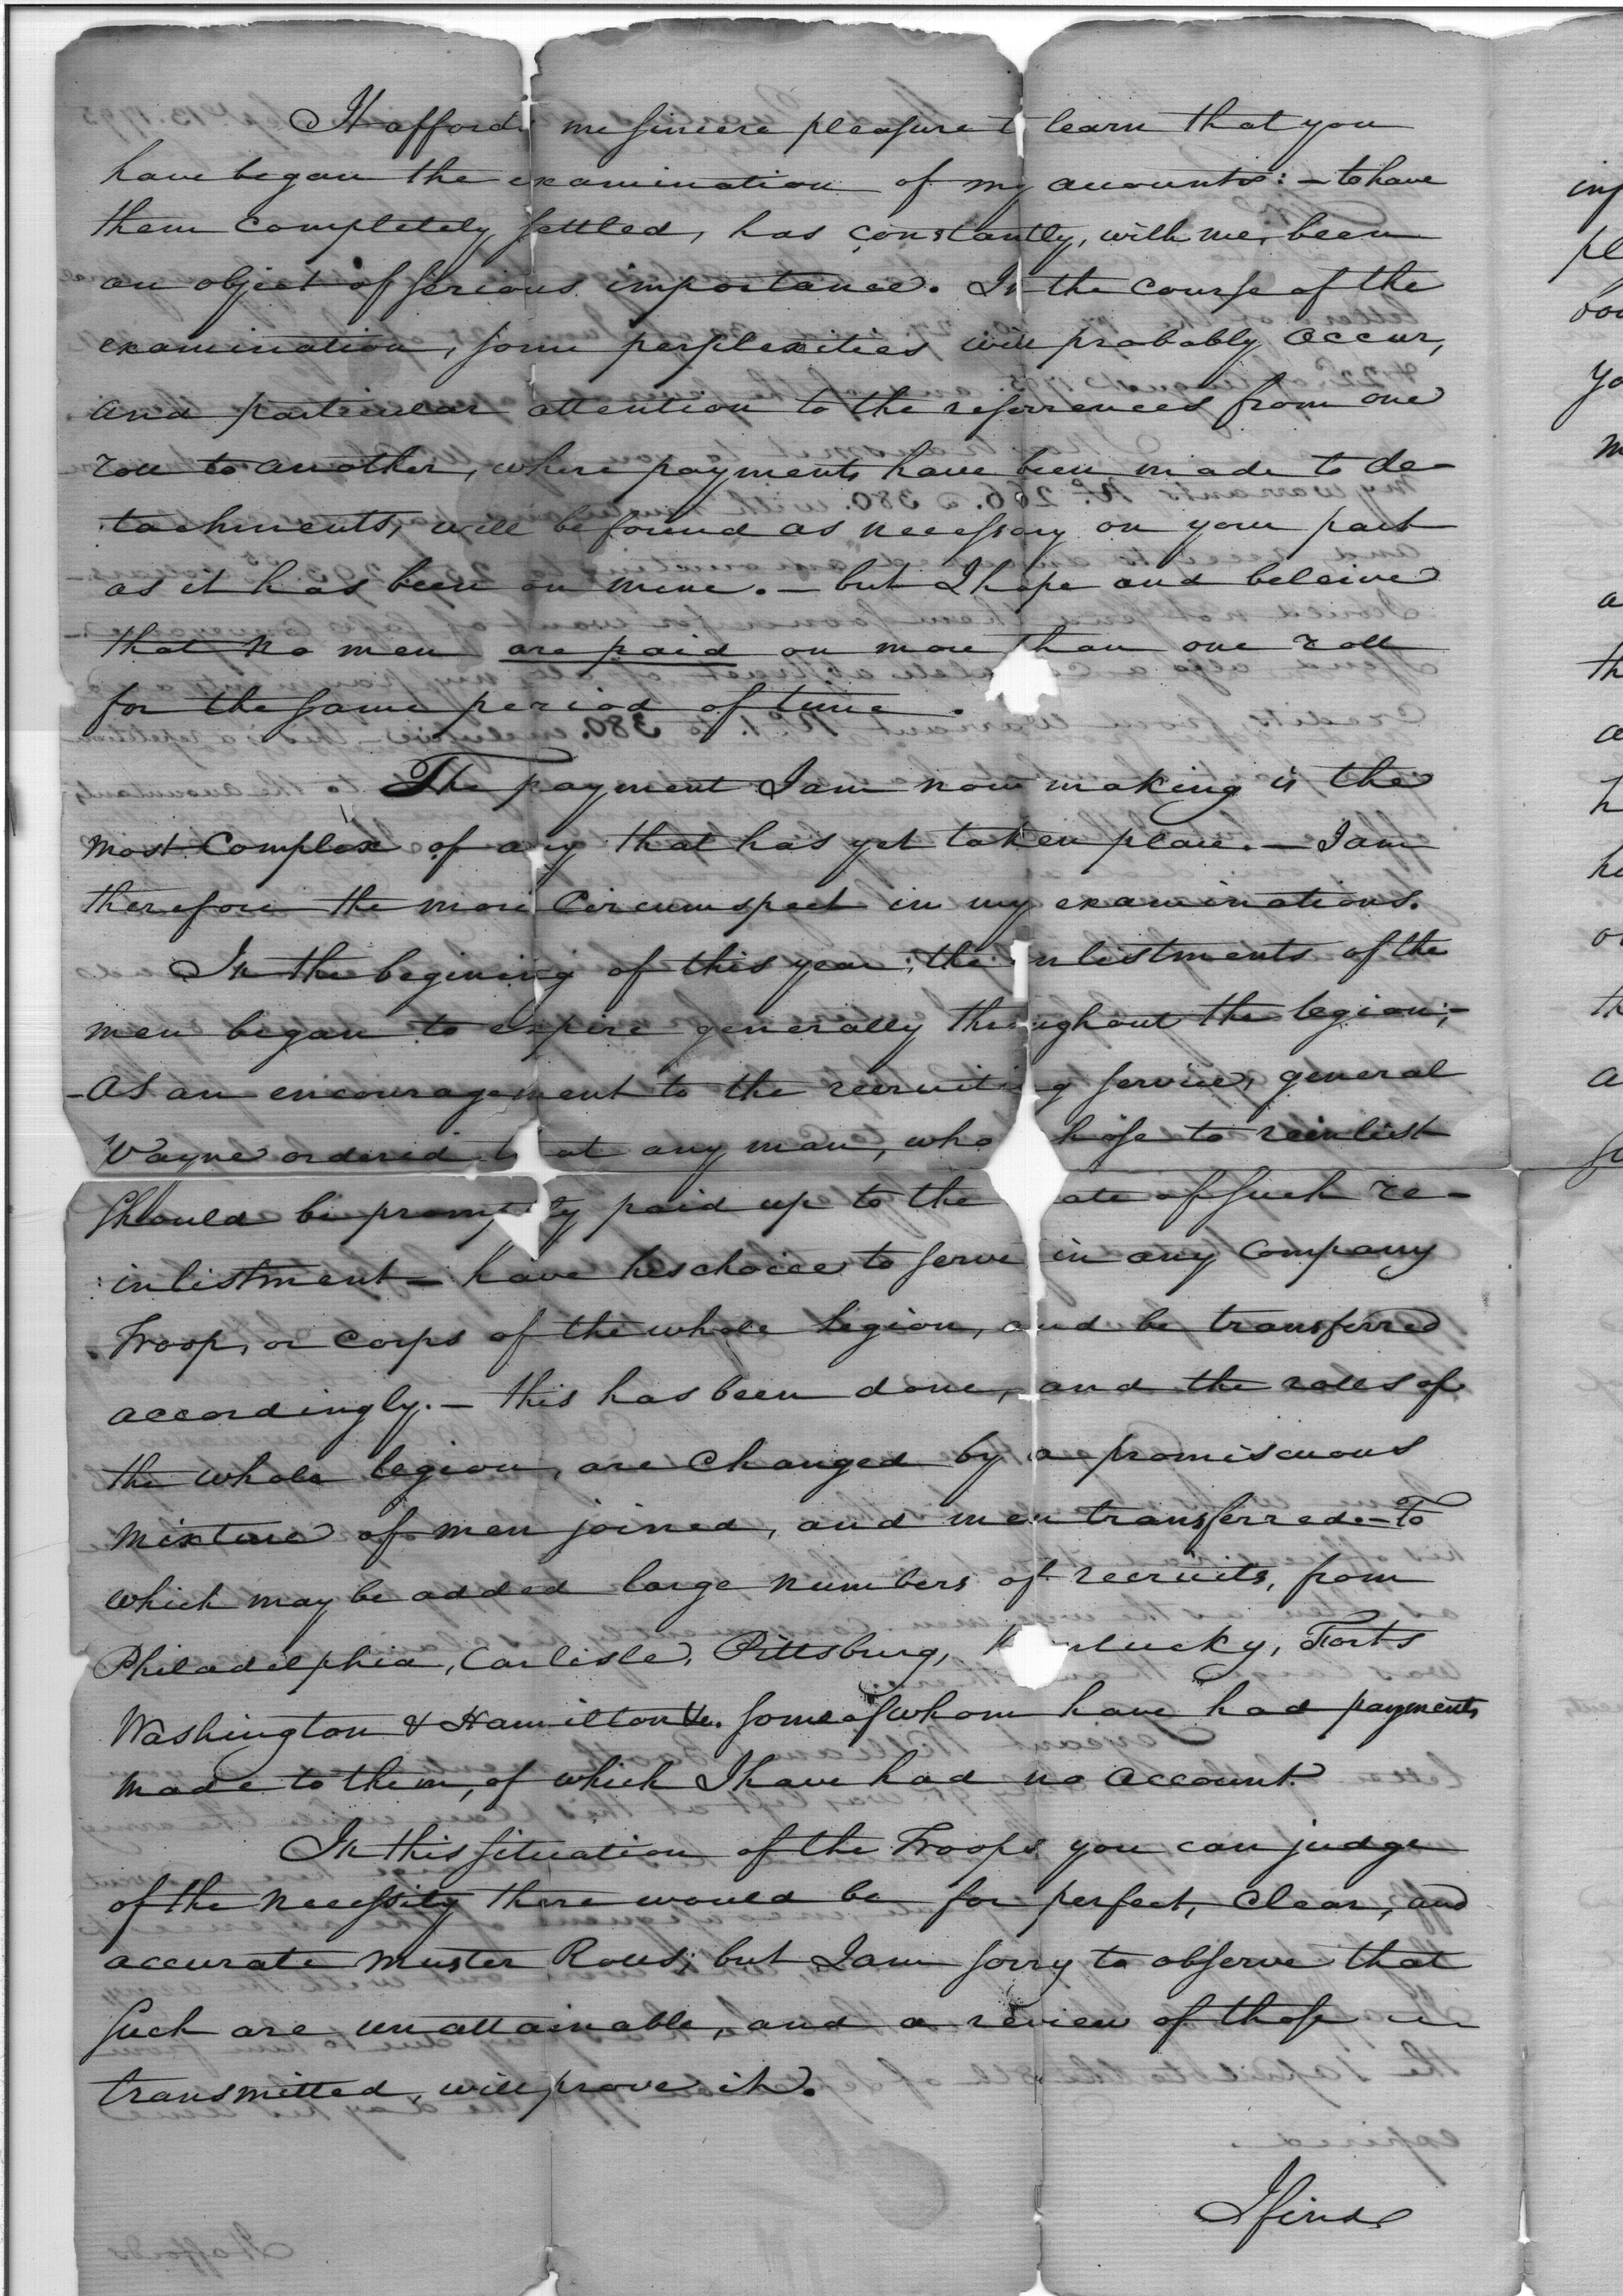 It affords me sincere pleasure to learn that you
have began the examination of my accounts: – to have
them completely settled, has constantly, with me, been
an object of serious importance. In the course of the
examination, some perplexities will probably occur,
and particular attention to the referrences from one
roll to another, where payments have been made to de-
tachments, will be found as necessary on your part
as it has been on mine. – but I hope and beleive
that no men are paid on more than one roll
for the same period of time.
The payment I am now making is the
most complex of any that has yet taken place. – I am
therefore the more circumspect in my examinations.
In the begining of this year, the inlistments of the
men began to expire generally throughout the legion; –
– As an encouragement to the recruiting service, general
Wayne ordered that any man, who chose to reinlist
should be promptly paid up to the date of such re-
inlistment – have his choice to serve in any company
Troop, or corps of the whole legion, and be transferred
accordingly. – this has been done, and the rolls of
the whole legion, are changed by a promiscuous
mixture of men joined, and men transferred – To
which may be added large numbers of recruits, from
Philadelphia, Carlisle, Pittsburg, Kentucky, Forts
Washington & Hamilton &c. some of whom have had payments
made to them, of which I have had no account.
In this situation of the Troops you can judge
of the necessity there would be for perfect, clear, and
accurate muster Rolls; but I am sorry to observe that
such are unattainable, and a review of those
transmitted, will prove it.
I find